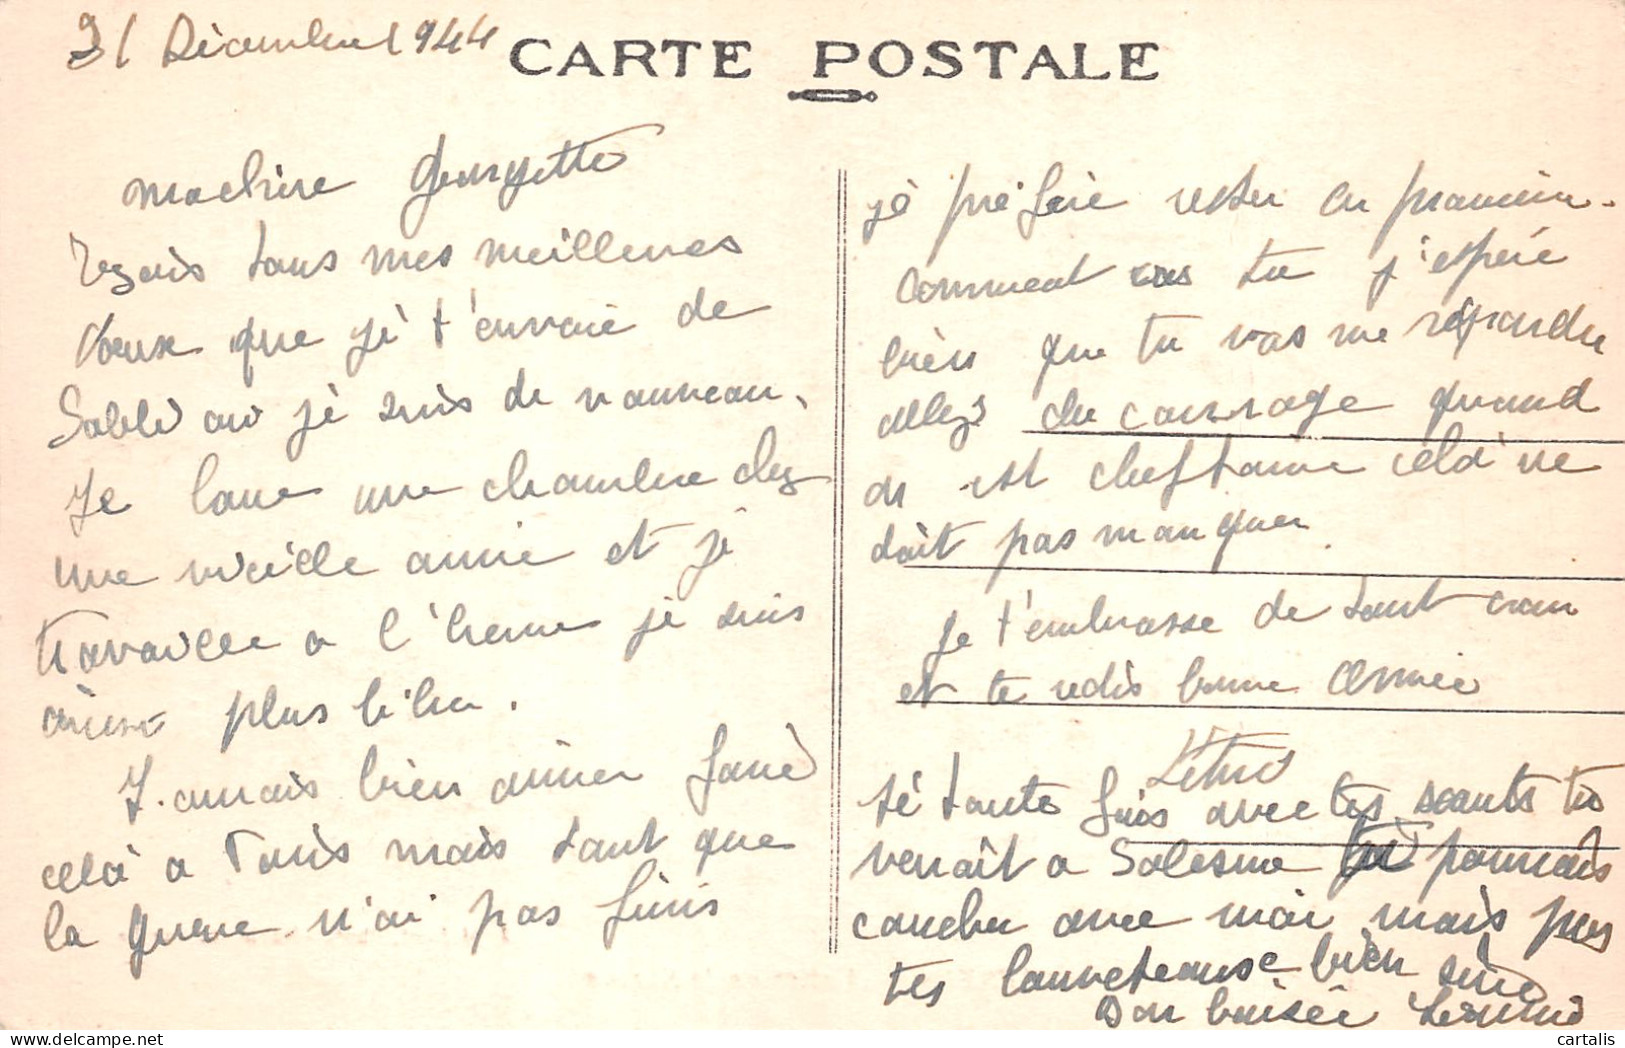 31 Décembre 1944
CARTE POSTALE
ma chère Georgette
Reçois tous mes meilleures
voeux que jè t'envoie de
Sablé où jè suis de nouveau.
Je loue une chambre chez
une vieille amie et jè
travaille a l'heure je suis
ainsi plus libre.
J'aurais bien aimer faire
celà a Paris mais tant que
la guerre n'ai pas finis
jè préfère rester en province.
comment vas tu j'espère
bièn que tu vas me répondre
allez du courage quand
on est cheftaine celà ne
doit pas manquer
Je t'embrasse de tout cœur
et te redis bonne Année
L'été
si toute fois avec tes scouts tu
venait a Solesme tu pourrais
coucher avec moi mais pas
tes louveteaux bièn sûre
Bon baisée
cartalis